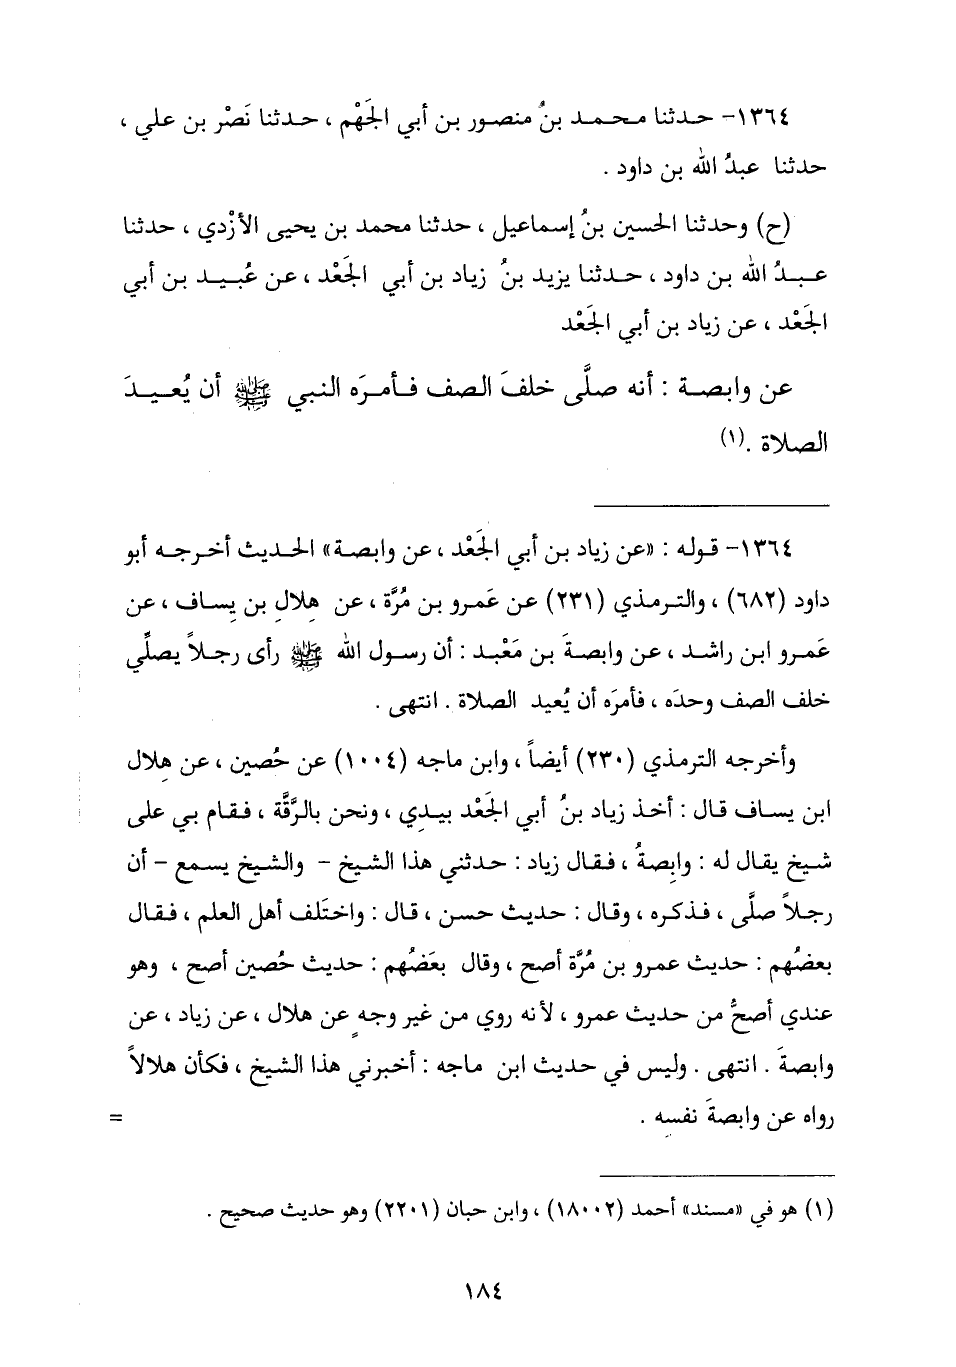 ١٣٦٤- حدثنا محمد بنُ منصور بن أبي الجَهْم ، حدثنا نَصْر بن علي ،
حدثنا عبدُ الله بن داود .
(ح) وحدثنا الحسين بنُ إسماعيل ، حدثنا محمد بن يحيى الأزْدي ، حدثنا
عبدُ الله بن داود ، حدثنا يزيد بنُ زياد بن أبي الجَعْد ، عن عُبيد بن أبي
الجَعْد ، عن زياد بن أبي الجَعْد
عن وابصة : أنه صلَّى خلفَ الصف فأمرَه النبي ﷺ أن يُعيدَ
الصلاة .(١)
١٣٦٤- قوله : «عن زياد بن أبي الجَعْد ، عن وابصة» الحديث أخرجه أبو
داود (٦٨٢) ، والترمذي (٢٣١) عن عَمرو بن مُرَّة ، عن هِلالِ بن يِساف ، عن
عَمرو ابن راشد ، عن وابصةَ بن مَعْبد : أن رسول الله ﷺ رأى رجلاً يصلِّي
خلف الصف وحدَه ، فأمرَه أن يُعيد الصلاة . انتهى .
وأخرجه الترمذي (٢٣٠) أيضاً ، وابن ماجه (١٠٠٤) عن حُصين ، عن هِلال
ابن يساف قال : أخذ زياد بنُ أبي الجَعْد بيدِي ، ونحن بالرَّقَّة ، فقام بي على
شيخ يقال له : وابِصةُ ، فقال زياد : حدثني هذا الشيخ - والشيخ يسمع - أن
رجلاً صلَّى ، فذكره ، وقال : حديث حسن ، قال : واختَلف أهل العلم ، فقال
بعضُهم : حديث عمرو بن مُرَّة أصح ، وقال بعَضُهم : حديث حُصين أصح ، وهو
عندي أصحُّ من حديث عمرو ، لأنه روي من غير وجهٍ عن هلال ، عن زياد ، عن
وابصةَ . انتهى . وليس في حديث ابن ماجه : أخبرني هذا الشيخ ، فكأن هلالاً
رواه عن وابصةَ نفسِه . =
(١) هو في «مسند» أحمد (١٨٠٠٢) ، وابن حبان (٢٢٠١) وهو حديث صحيح .
١٨٤